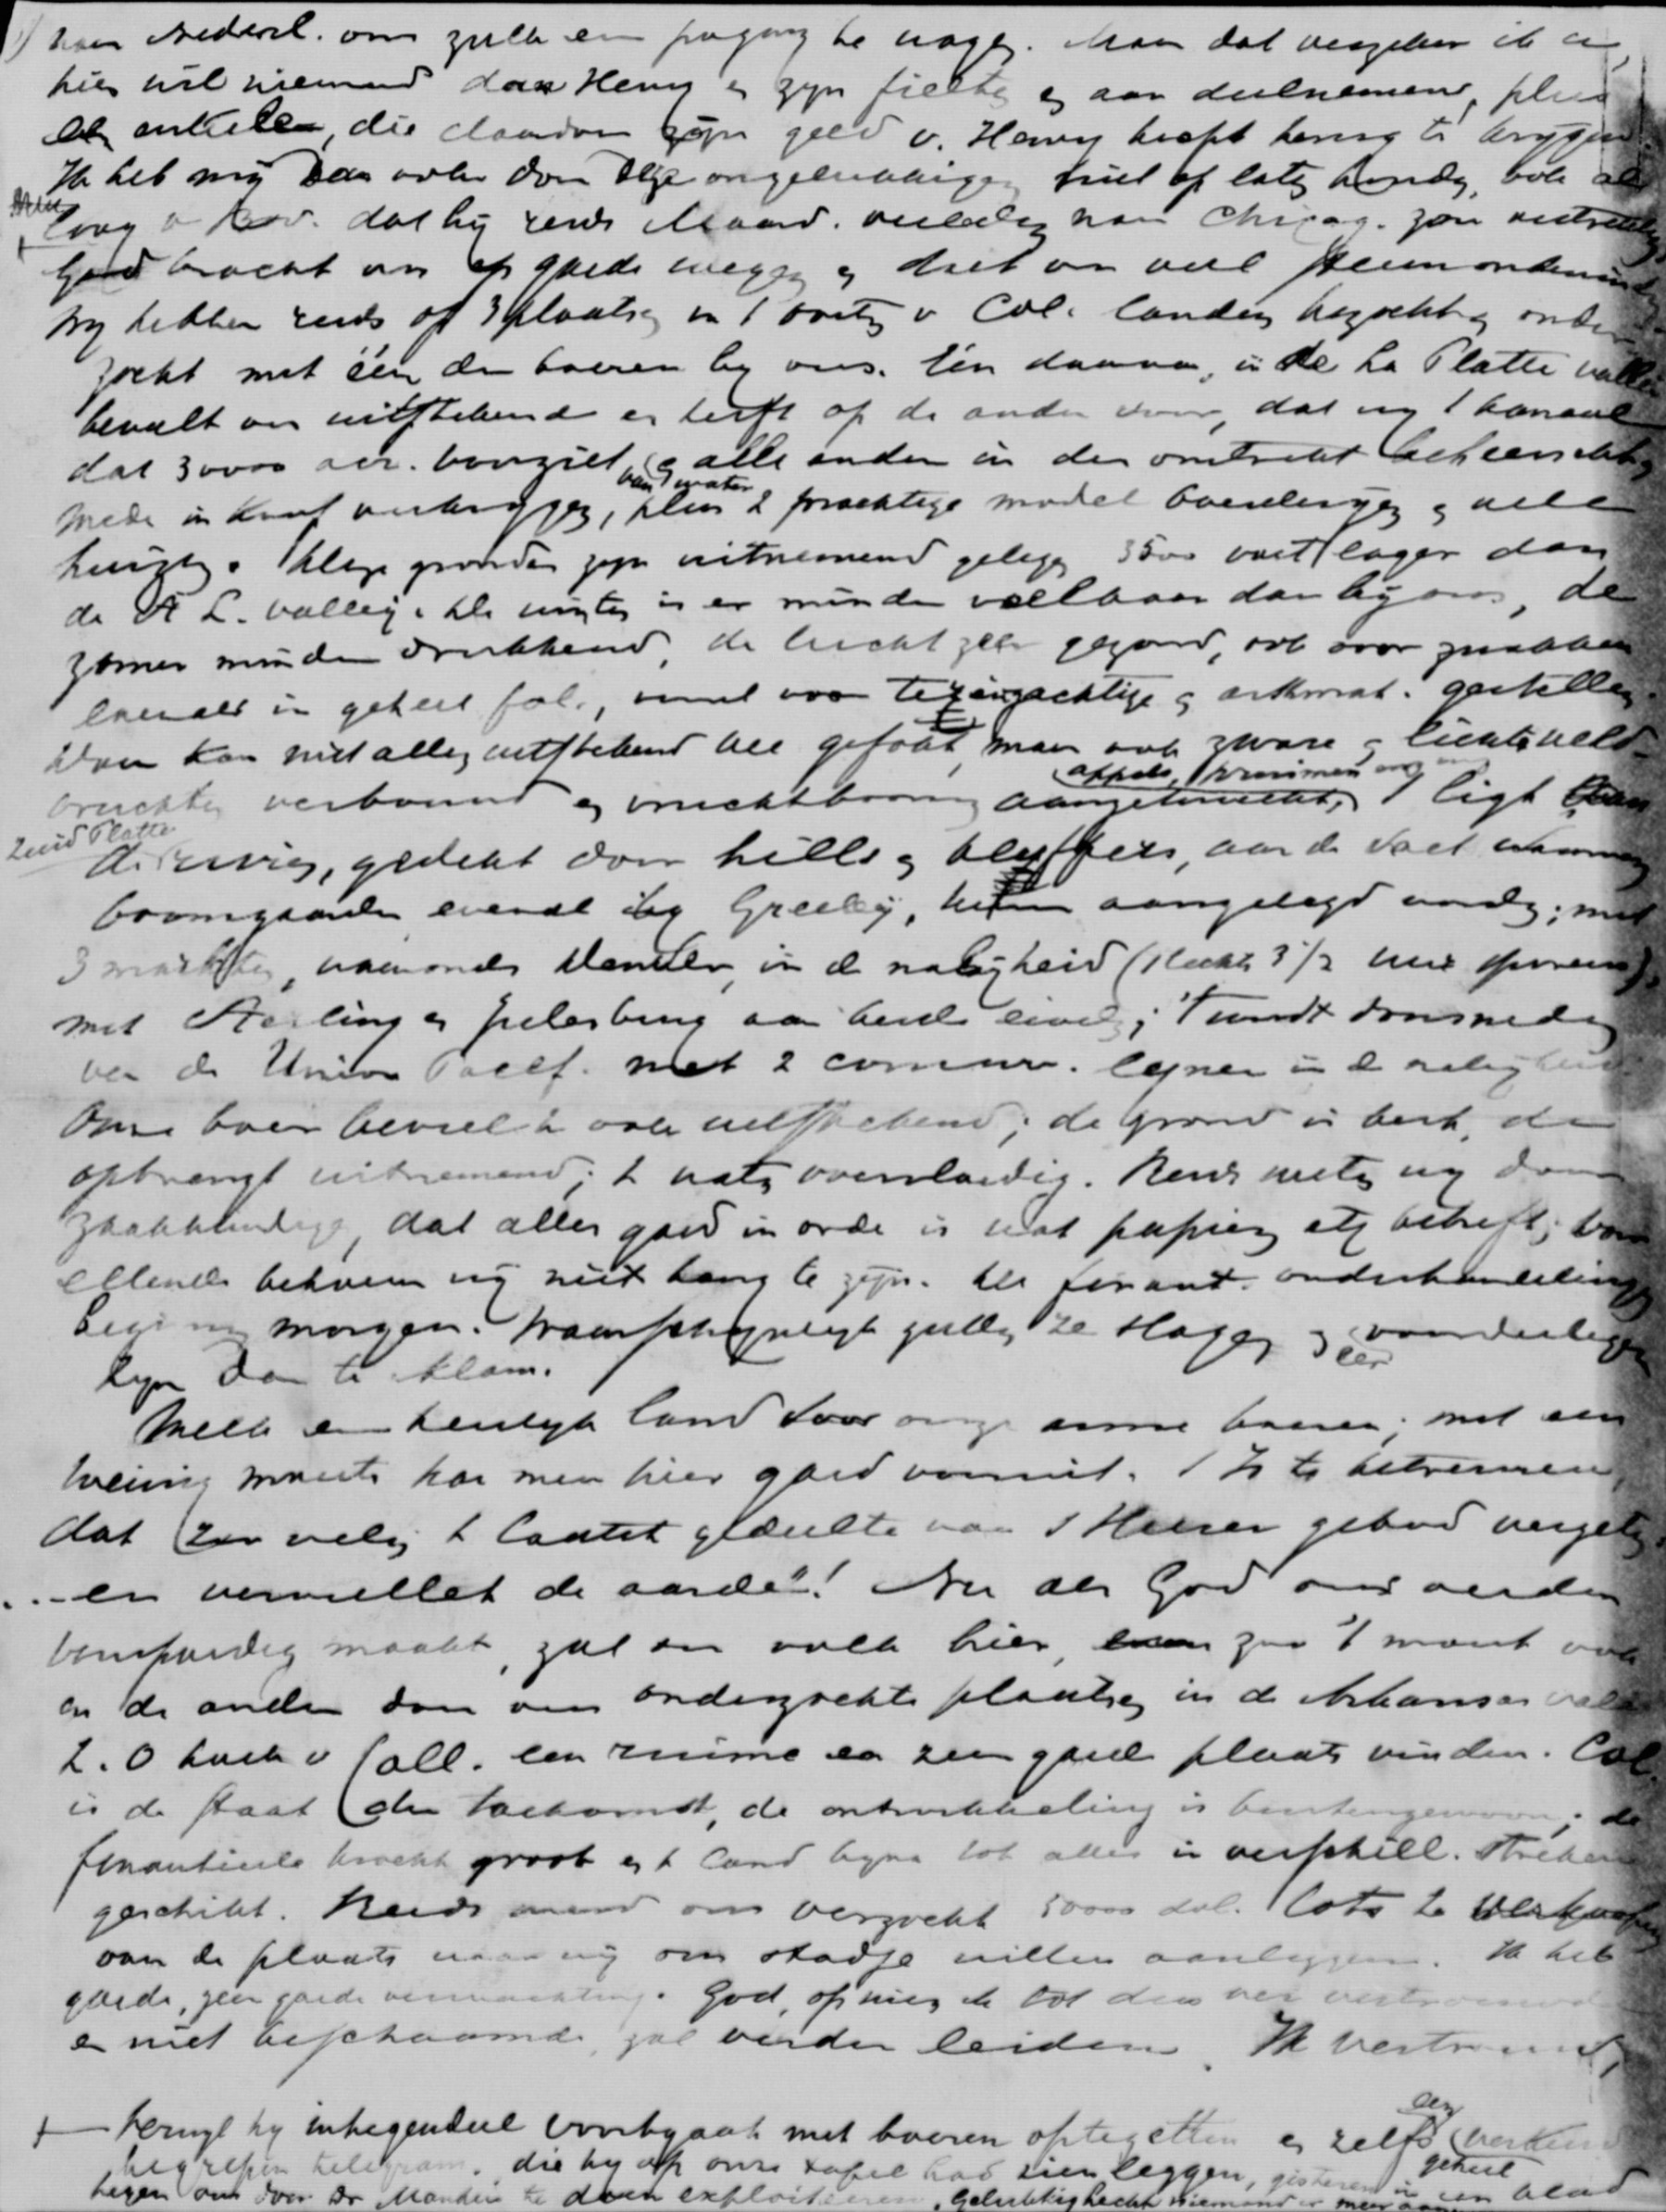 naar Nederl. om zulk een poging te wagen. Maar dat vergeten
hier wil niemand dan Henry & zyn aan deelnemen, plus
enkelen, die daardoor zyn geld v. Henry hoopt terug te krygen.
Ik heb my dan ook door deze ongelukkigen niet op laten houden, ook
loog v. dat hy reeds Maand. naar Chicag. zou vertrekken
God bracht ons op goede wegen & doet ons veel steun ondervinden
Wy hebben reeds op 3 plaatsen in 't oosten v Col. landen bezocht & onder
zocht met één der boeren by ons. Eén daarvan, in de La Platte vallei
bevalt ons uitstekend en heeft op de andere voor, dat wy 't kanaal
dat 30000 acr. voorziet van water & alle andere in den omtrek
mede in koop verkrygen, plus 2 prachtige model boerderyen & vele
huizen. Deze gronden zyn uitnemend gelegen 3500 voet lager dan
de S. L. vallei. De winter is er minder voelbaar dan by ons, de
zomer minder drukkend, de lucht zeer gezond, ook voor zwakken
evenals in geheel Col., vooral voor teringachtige & asthmat. gestellen.
Men kan niet alleen uitstekend vee gefokt, maar ook zware & lichte veld-
vruchten verbouwd & vruchtboomen appels, pruimen aangekweekt, 't ligt aan
Zuid Platte
de rivier, gedekt door hills & bluffers, aan de voet waarvan
boomgaarden evenals by Greeley, kunnen aangelegd worden; met
3 markten, waaronder Denver, in de nabyheid (slechts 3 1/2 uur sporens),
met Sterling & Julesburg aan beide einden; 't wordt doorsneden
van de Union Pacif. met 2 concurr. lynen in de nabyheid.
Onze boer beviel 't ook uitstekend; de grond is best, de
opbrengst uitnemend; 't water overvloedig. Reeds weten wy door
zaakkundige, dat alles goed in orde is wat papieren etc betreft; voor
ellende behoeven wy niet bang te zyn. De finant. onderhandelingen
beginnen morgen. Waarschynlyk zullen ze slagen & voordeeliger
zyn dan te Alam.
Welk een heerlyk land voor onze arme boeren; met een
weinig moeite kan men hier goed vooruit. 't Is te betreuren,
dat zoo velen 't laatst gedeelte van 's Heeren gebod vergeten
... en vervullet de aarde"! Nu als God ons verder
voorspoedig maakt, zal ons volk hier, even zoo 't moest ook
in de andere door ons onderzochte plaatsen in de Arkansas vallei
Z. O hoek v Coll. een ruime en zeer goede plaats vinden. Col.
is de staat der toekomst, de ontwikkeling is buitengewoon; de
finantieele kracht groot & 't land byna tot alles in verschill. streken
geschikt. Reeds werd ons verzocht 50000 dol. lots te verkoopen
van de plaats waar wy ons stadje willen aanleggen. Ik heb
goede, zeer goede verwachting. God, op wien ik tot dus ver vertrouwde
& niet beschaamde, zal verder leiden. Ik vertrouw,
+ Terwyl hy integendeel voortgaat met boeren optezetten & zelfs een verkeerd
begrepen telegram, die hy op onze tafel had zien leggen, gisteren in geheel
tegen ons door Dr te doen exploiteeren. Gelukkig hecht niemand er meer aan